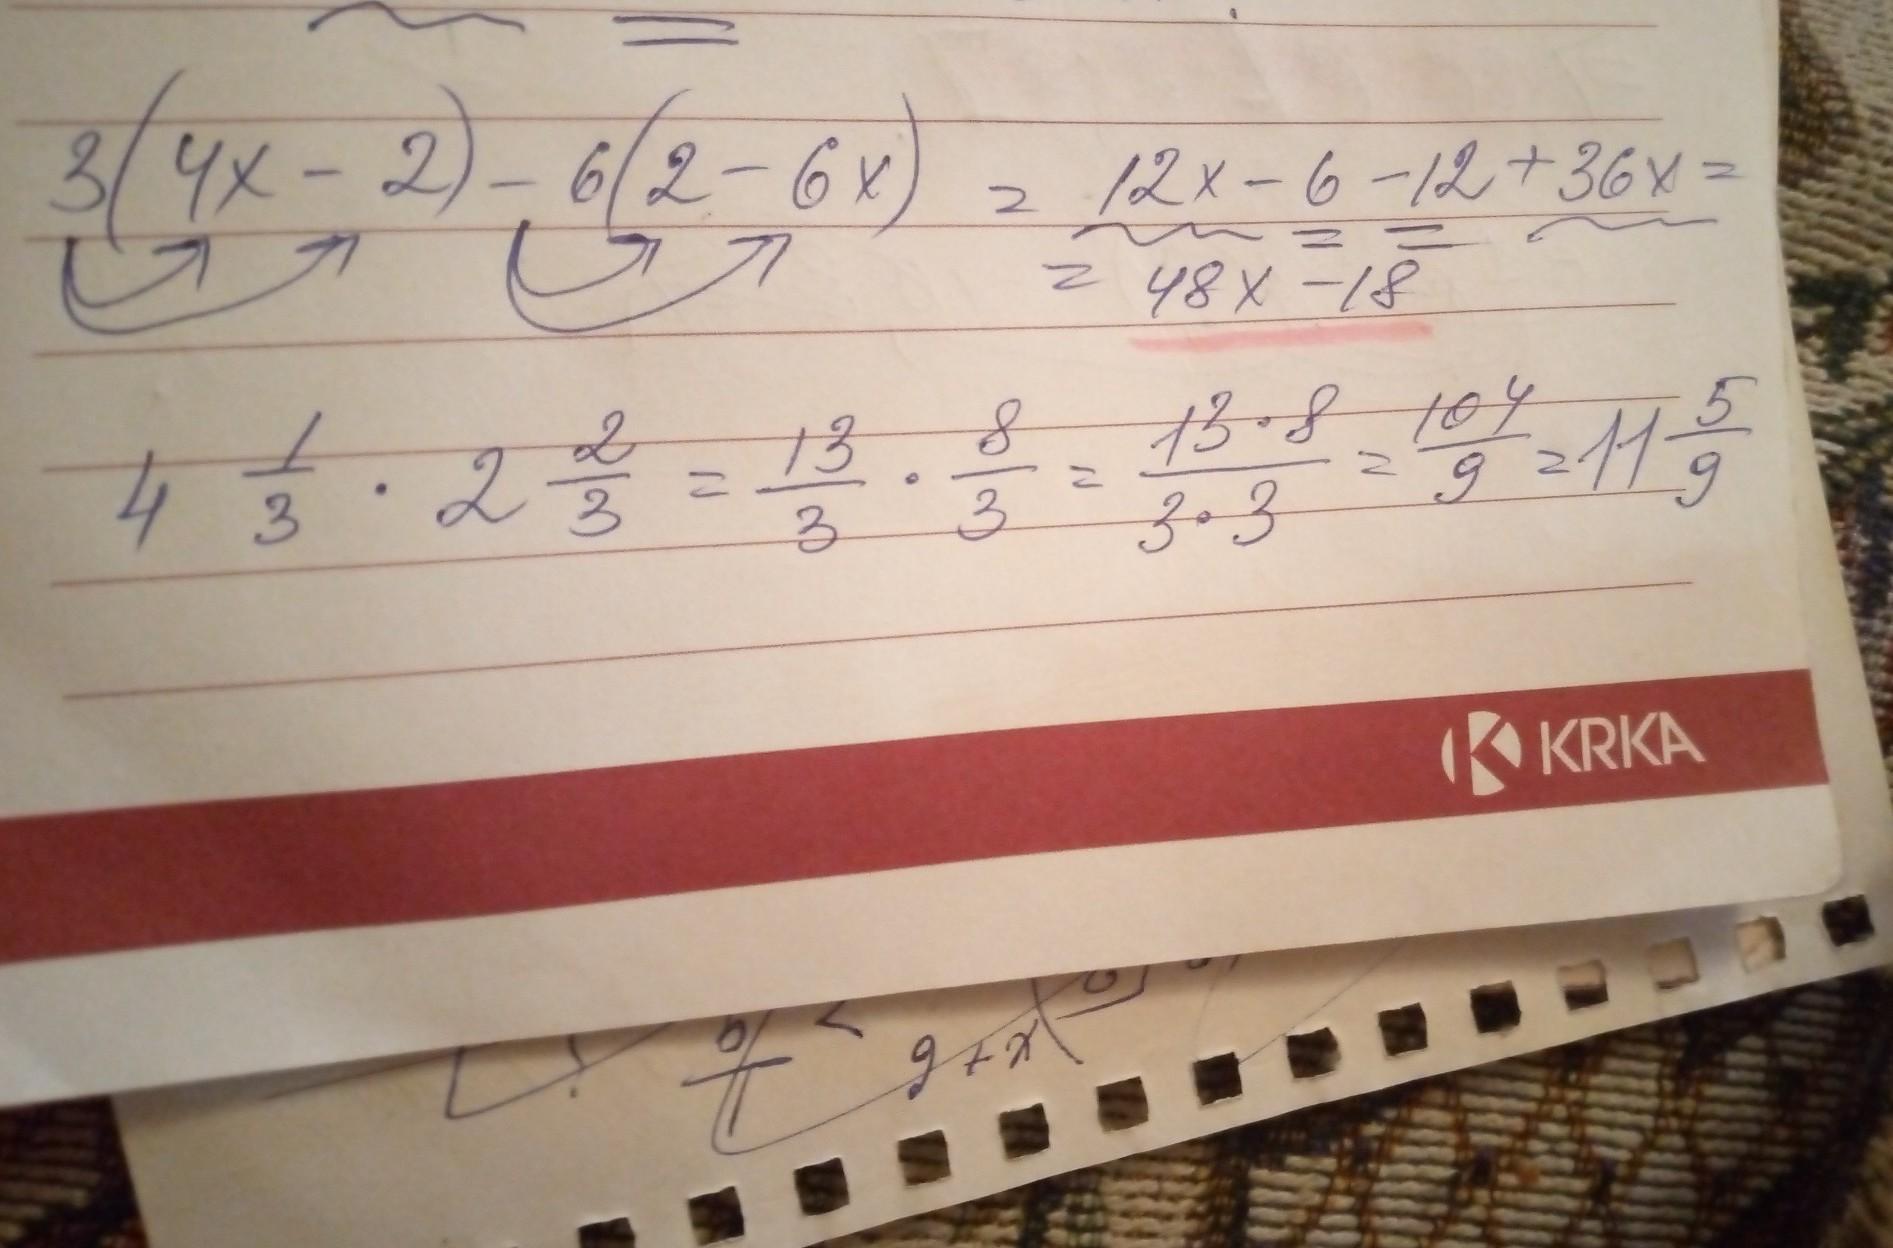 3(4x - 2) - 6(2 - 6x) = 12x - 6 - 12 + 36x =
= 48x - 18
4 1/3 · 2 2/3 = 13/3 · 8/3 = 13·8/3·3 = 104/9 = 11 5/9
KRKA
9 + x